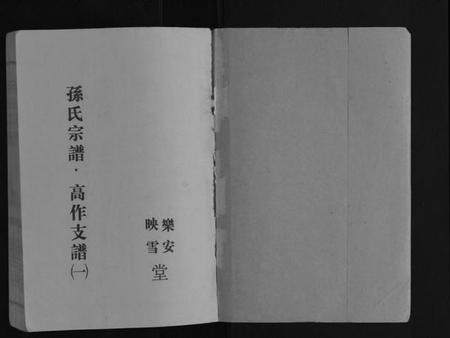 孫氏宗譜·高作支譜㈠
樂安
映雪
堂